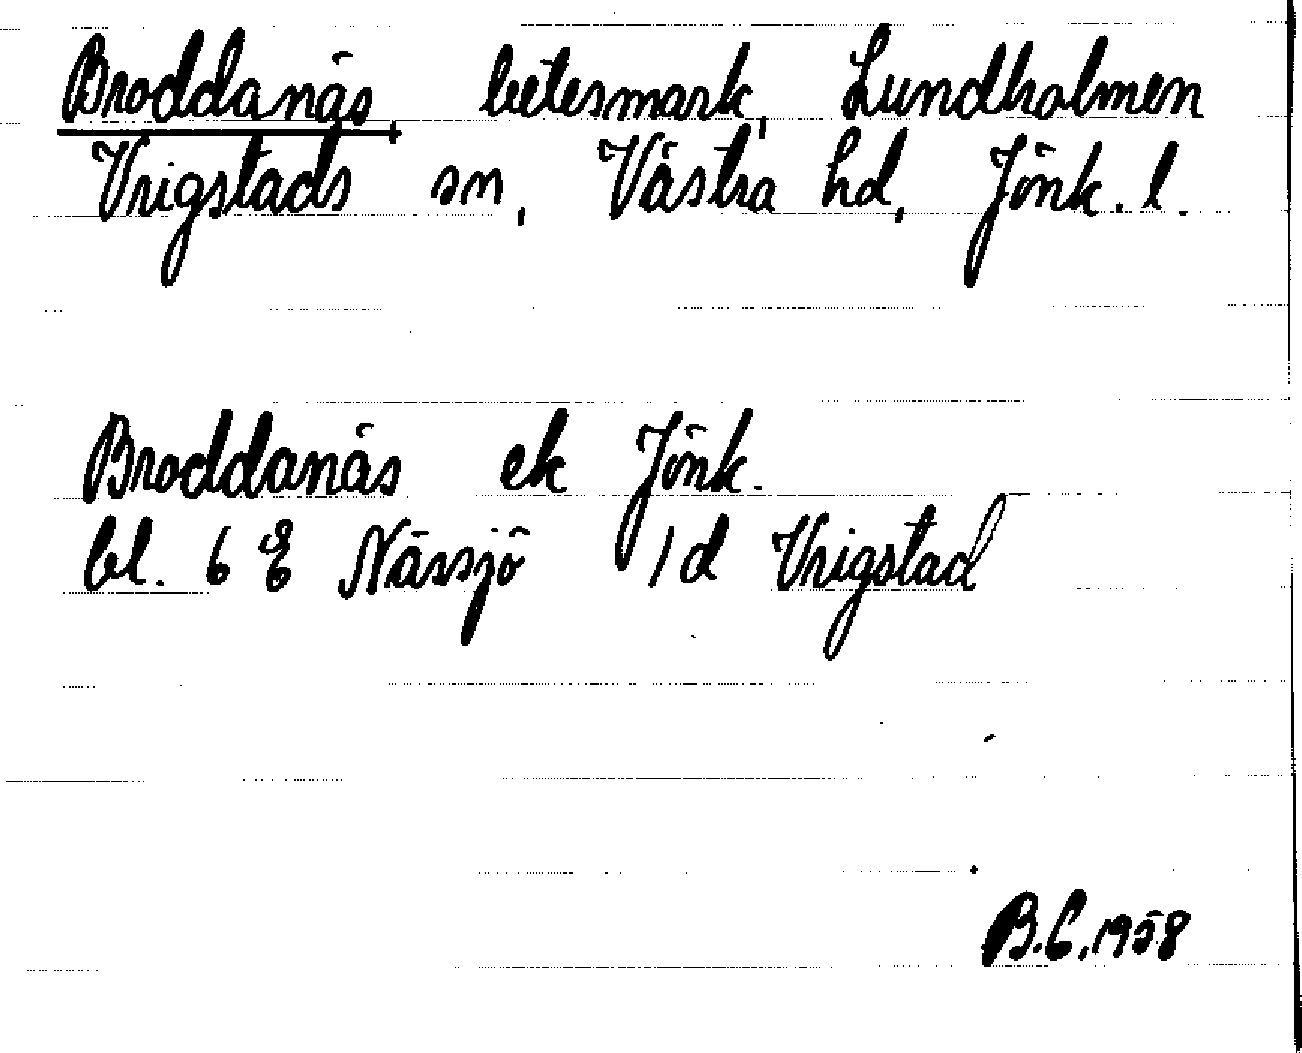 Broddanäs, betesmark, Lundholmen
Vrigstads sn, Västra hd, Jönk. l.
Broddanäs ek Jönk.
bl. 6 E Nässjö 1d Vrigstad
B.C. 1958